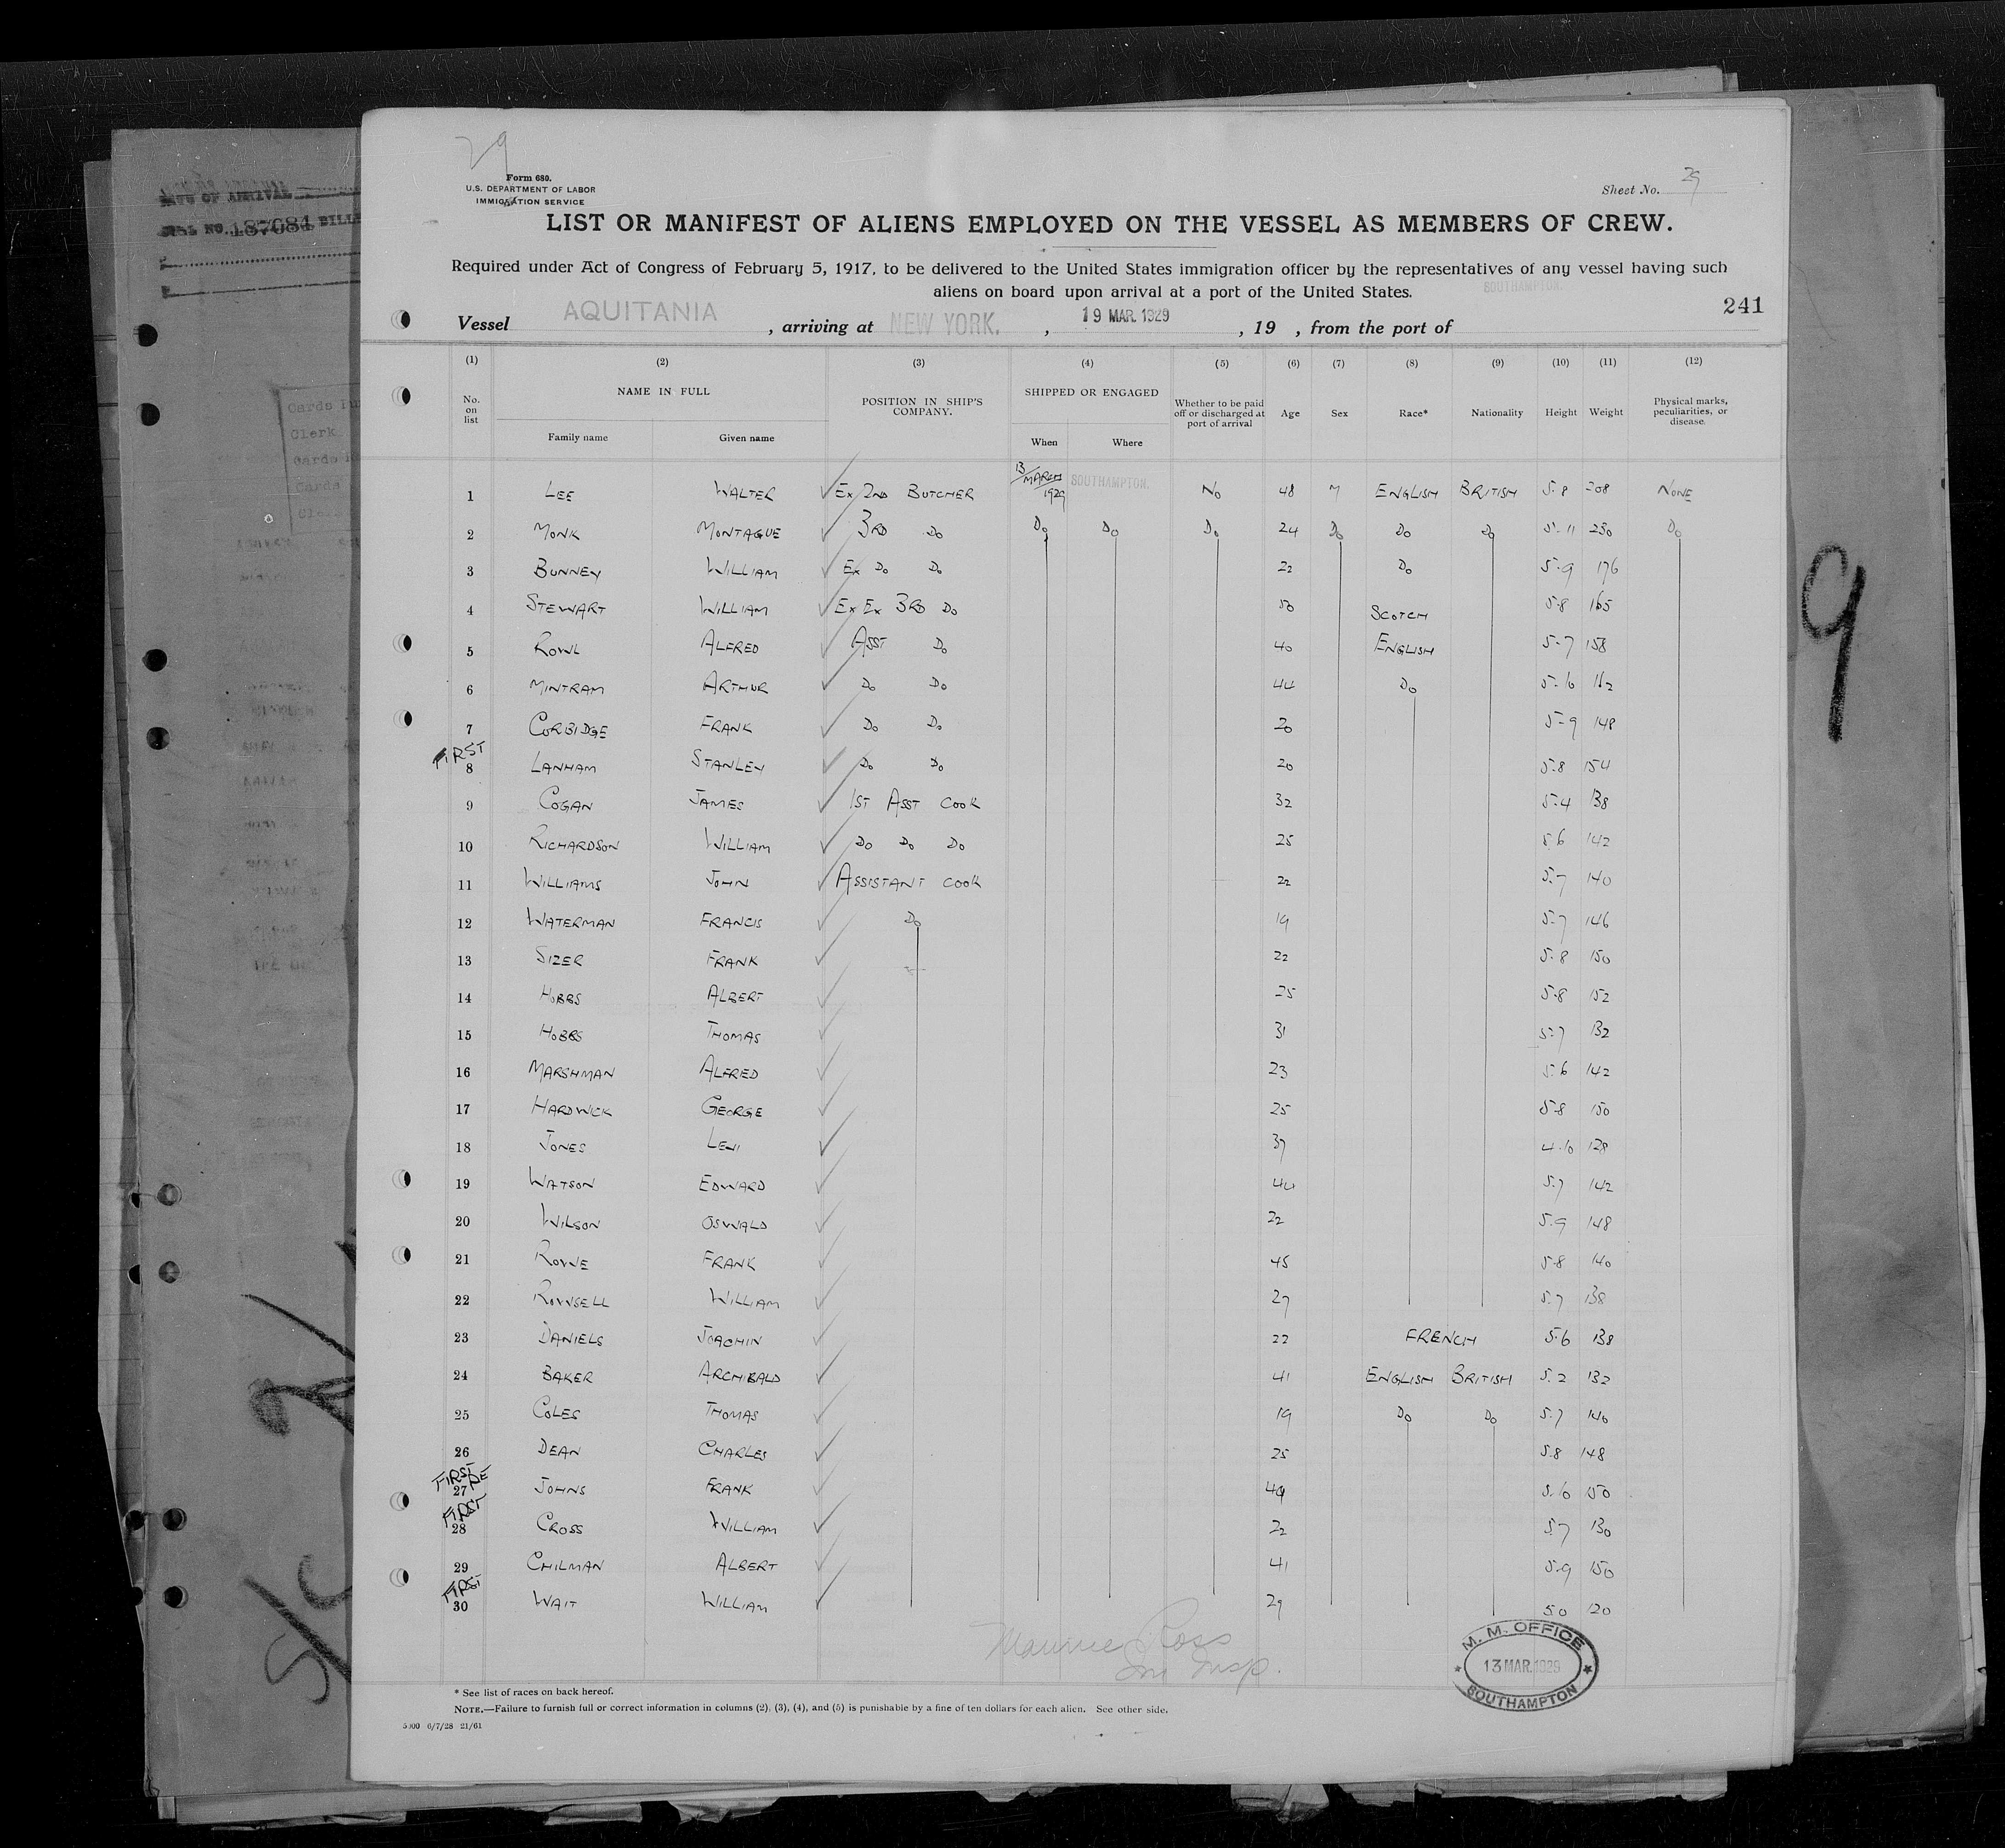 29
Form 680.
U.S. DEPARTMENT OF LABOR
IMMIGRATION SERVICE
Sheet No. 29
LIST OR MANIFEST OF ALIENS EMPLOYED ON THE VESSEL AS MEMBERS OF CREW.
Required under Act of Congress of February 5, 1917, to be delivered to the United States immigration officer by the representatives of any vessel having such
aliens on board upon arrival at a port of the United States.
SOUTHAMPTON.
241
Vessel AQUITANIA, arriving at NEW YORK., 19 MAR. 1929, 19 , from the port of
(1) (2) (3) (4) (5) (6) (7) (8) (9) (10) (11) (12)
No. on list NAME IN FULL POSITION IN SHIP'S COMPANY. SHIPPED OR ENGAGED Whether to be paid off or discharged at port of arrival Age Sex Race* Nationality Height Weight Physical marks, peculiarities, or disease.
Family name Given name When Where
1 LEE WALTER Ex 2ND BUTCHER 13/MARCH 1929 SOUTHAMPTON. No 48 M ENGLISH BRITISH 5-8 208 NONE
2 MONK MONTAGUE 3RD Do Do Do Do 24 Do Do Do 5-11 230 Do
3 BUNNEY WILLIAM Ex Do Do 22 Do 5-9 176
4 STEWART WILLIAM Ex Ex 3RD Do 50 SCOTCH 5-8 165
5 ROWL ALFRED ASST Do 40 ENGLISH 5-7 158
6 MINTRAM ARTHUR Do Do 44 Do 5-6 162
7 CORBIDGE FRANK Do Do 20 5-9 148
FIRST
8 LANHAM STANLEY Do Do 20 5-8 154
9 COGAN JAMES 1ST ASST COOK 32 5-4 138
10 RICHARDSON WILLIAM Do Do Do 25 5-6 142
11 WILLIAMS JOHN ASSISTANT COOK 22 5-7 140
12 WATERMAN FRANCIS Do 19 5-7 146
13 SIZER FRANK 22 5-8 150
14 HOBBS ALBERT 25 5-8 152
15 HOBBS THOMAS 31 5-7 132
16 MARSHMAN ALFRED 23 5-6 142
17 HARDWICK GEORGE 25 5-8 150
18 JONES LEVI 37 4-10 128
19 WATSON EDWARD 44 5-7 142
20 WILSON OSWALD 22 5-9 148
21 ROWE FRANK 45 5-8 140
22 ROWSELL WILLIAM 27 5-7 138
23 DANIELS JOACHIN 22 FRENCH 5-6 138
24 BAKER ARCHIBALD 41 ENGLISH BRITISH 5-2 132
25 COLES THOMAS 19 Do Do 5-7 140
26 DEAN CHARLES 25 5-8 148
FIRST
27 JOHNS FRANK 49 5-10 150
FIRST
28 CROSS WILLIAM 22 5-7 130
29 CHILMAN ALBERT 41 5-9 150
FIRST
30 WAIT WILLIAM 29 5-0 120
Maurice Ross
Im Insp.
M. M. OFFICE
13 MAR. 1929
SOUTHAMPTON
* See list of races on back hereof.
NOTE.—Failure to furnish full or correct information in columns (2), (3), (4), and (5) is punishable by a fine of ten dollars for each alien. See other side.
5000 6/7/28 21/61
9
187684